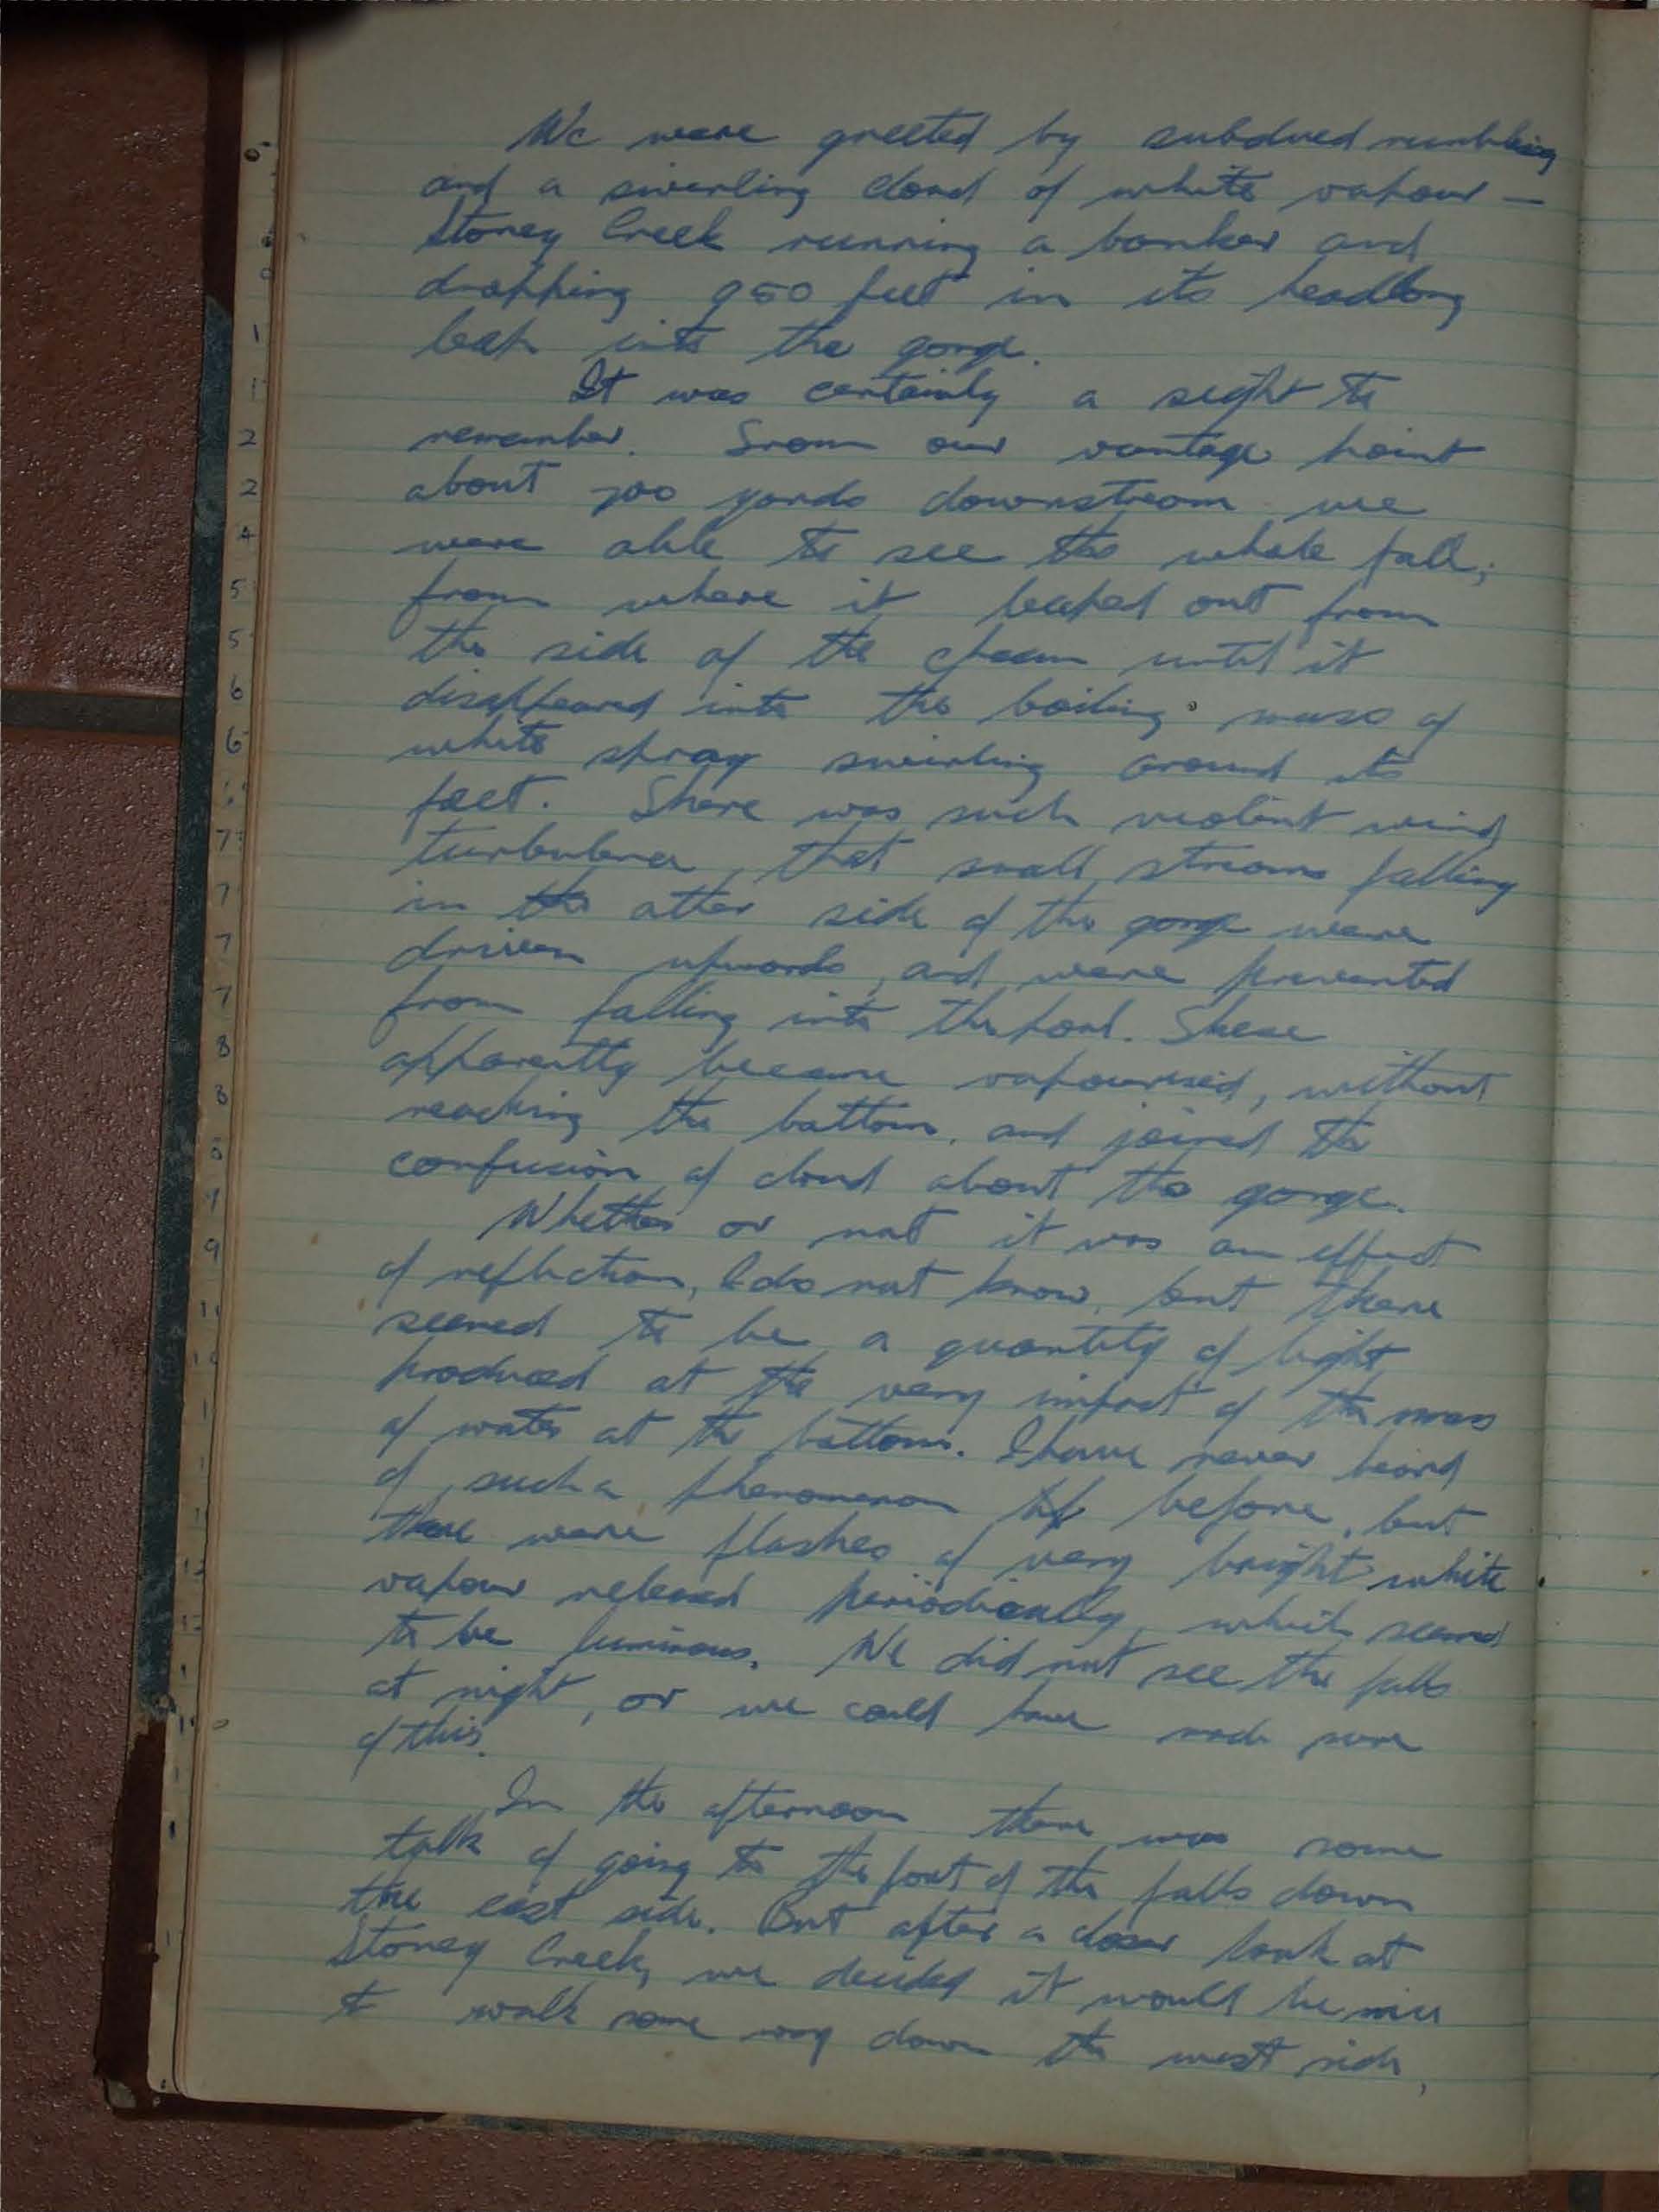 We were greeted by subdued rumbling
and a swirling cloud of white vapour —
Stoney Creek running a banker and
dropping 950 feet in its headlong
leap into the gorge.
It was certainly a sight to
remember. From our vantage point
about 700 yards downstream we
were able to see the whole fall;
from where it leaped out from
the side of the chasm until it
disappeared into the boiling mass of
white spray swirling around its
feet. There was such violent wind
turbulence, that small streams falling
in the other side of the gorge were
driven upwards, and were prevented
from falling into the pool. These
apparently became vapourised, without
reaching the bottom, and joined the
confusion of cloud about the gorge.
Whether or not it was an effect
of reflection, I do not know, but there
seemed to be a quantity of light
produced at the very impact of the mass
of water at the bottom. I have never heard
of such a phenomenon before, but
there were flashes of very bright white
vapour released periodically, which seemed
to be luminous. We did not see the falls
at night, or we could have made sure
of this.
In the afternoon there was some
talk of going to the foot of the falls down
the east side. But after a closer look at
Stoney Creek, we decided it would be nice
to walk some way down the west side,